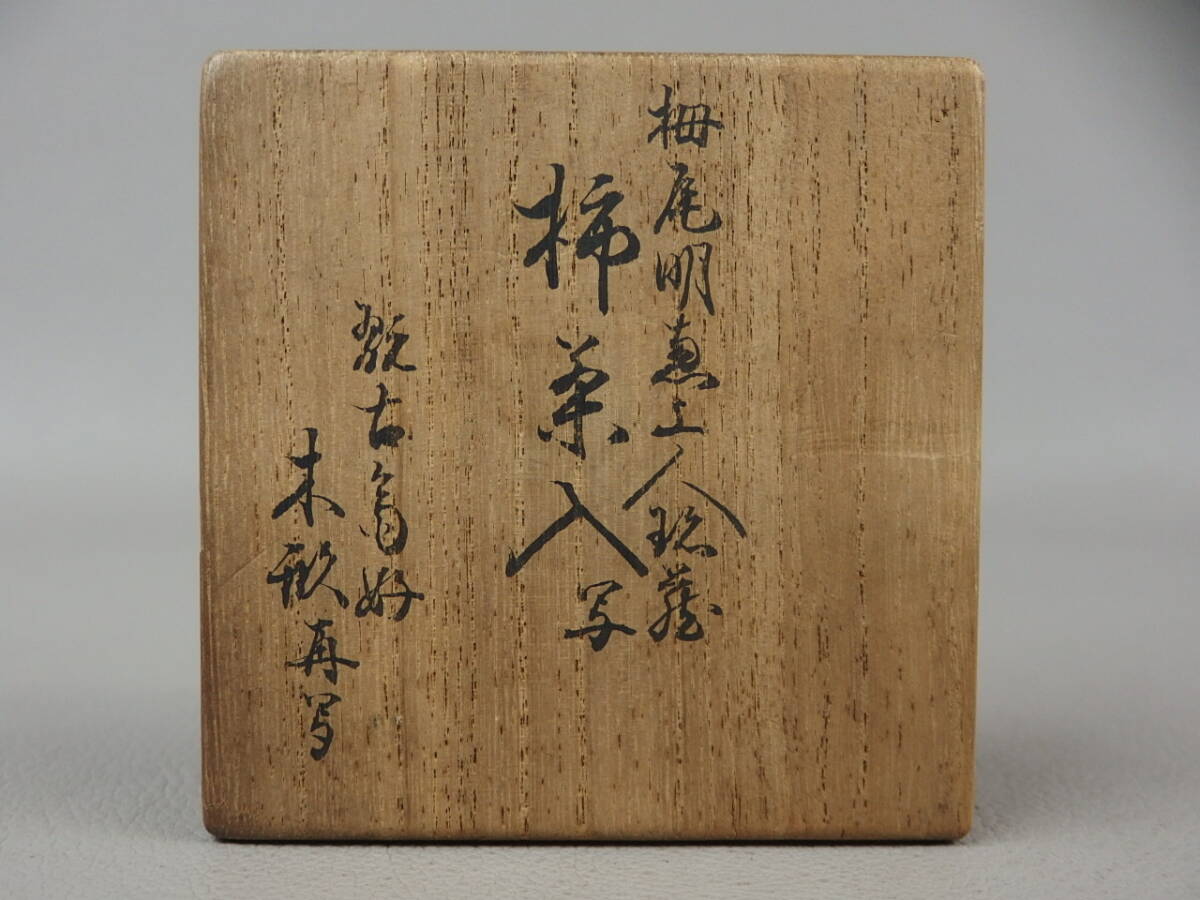 栂尾明恵上人珍蔵
柿茶入写
翫古斎好
木歇再写